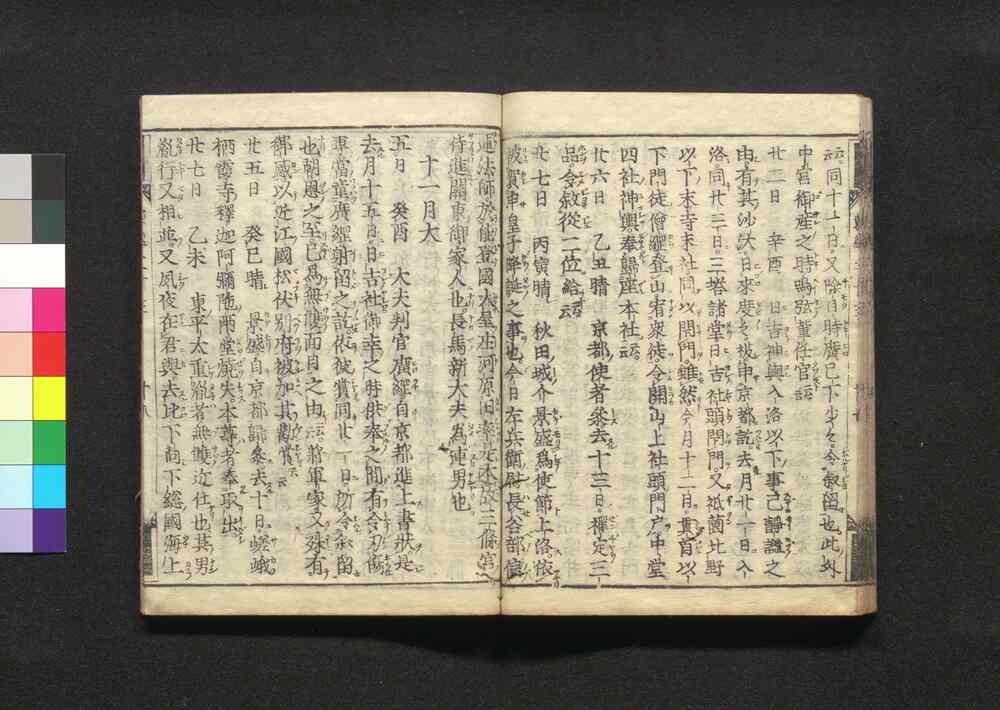 云同十一日又除目時廣已下少々令叙留也此外
中宮御産之時鳴弦輩任官云云
廿二日 辛酉 日吉神輿入洛以下事已靜謐之
由有其沙汰日來度々被申京都訖去月廿一日入
洛同廿二日三塔諸堂日吉社頭閉門又祇薗北野
以下末寺末社同以閉門雖然今月十二日 以
下門徒僧綱登山宥衆徒令開山上社頭門戸中堂
四社神輿奉歸座本社云云
廿六日 乙丑晴 京都使者參去十三日禪定三
品令叙從二位給云云
廿七日 丙寅晴 秋田城介景盛爲使節上洛依
被賀申皇子降誕之事也今日左兵衛尉長谷部信
連法師於能登國大屋庄河原田卒是本故三條宮
侍進關東御家人也長馬新大夫為連男也
十一月大
五日 癸酉 大夫判官廣綱自京都進上書状是
去月十五日日吉社御幸之時供奉之間有令刃傷
事當童廣經射留之訖依彼賞同廿一日所令叙留
也朝恩之至已爲無雙面目之由云云將軍家又殊有
御感以近江國松伏別府被加其勸賞云云
廿五日 癸巳晴 景盛自京都歸參去十日嵯峨
栖霞寺釋迦阿彌陀兩堂燒失本尊者奉取出
廿七日 乙未 東平太重胤者無雙近仕也其男
胤行又相逐又夙夜在君與去比下向下総國海上